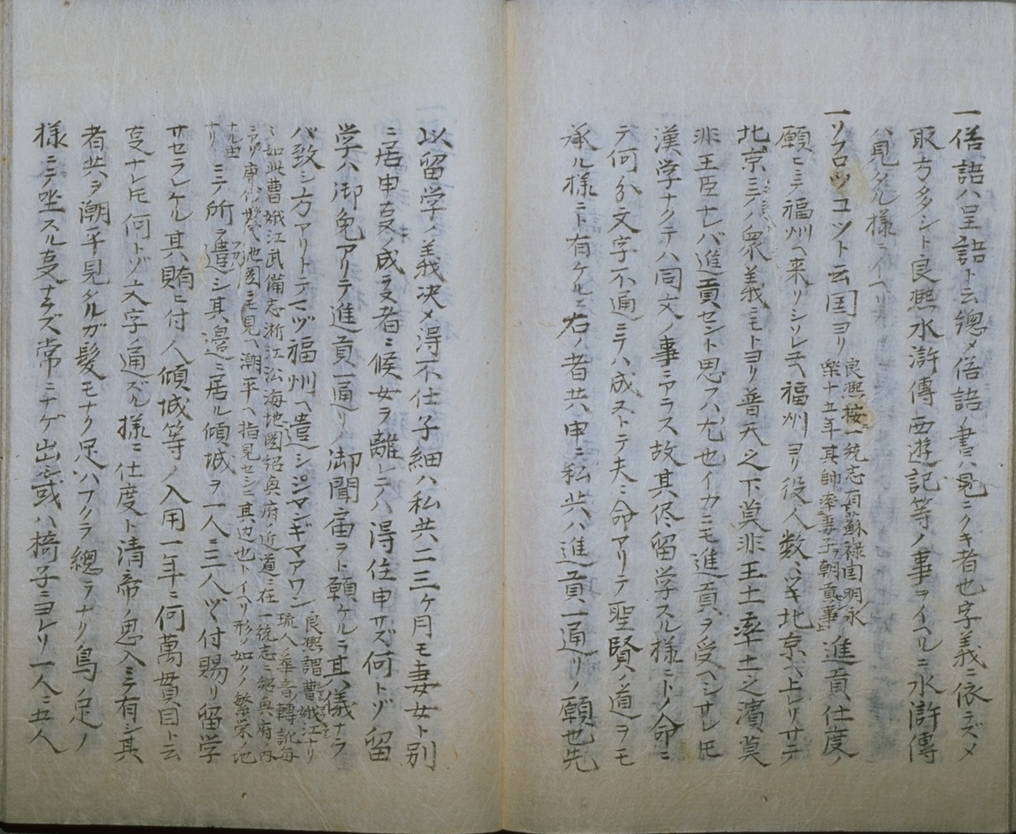 一俗語ハ呈語ト云總メ俗語ノ書ハ見ニクキ者也字義ニ依ラズメ
取方多シト良熈水滸傳西遊記等ノ事ヲイヘルニ水滸傳
ハ見タル様ライヘリ
一ソフロツコツト云国ヨリ
良熈按一統志有蘇禄国明永
樂十五年其帥率妻子朝貢事
進貢仕度ノ
願ニテ福州ヘ来リシソレヲ福州ヨリ役人数ツキ北京ヘ上ヒリサテ
北京ニテハ衆義ニモトヨリ普天之下莫非王土率土之濱莫
非王臣ナレバ進貢セント思フハ尤也イカニモ進貢ヲ受ヘシサレモ
漢学ナクテハ同文ノ事ニアラス故其侭留学スル様ニトノ命ニ
テ何分文字不通ニテハ成ストテ夫ニ命アリテ聖賢ノ道ヲモ
承ル様ニト有ケルニ右ノ者共申ニ私共ハ進貢一通リノ願也先
以留学ノ義決メ得不仕子細ハ私共二三ヶ月モ妻女ト別
ニ居申事ノ成ラヌ者ニ候女ヲ離レテハ得住申サズ何トゾ留
学ハ御免アリテ進貢一通リノ御聞届ヲト願ケルヲ其儀ナラ
バ致シ方アリトテマヅ福州ヘ遣シジマギマアワン
良熈謂曹娥江ナリ
琉人ノ華音轉訛毎
ニ如此曹娥江武備志浙江沿海地圖紹興府ノ近道ニ在一統志ニ紹興府ノ内
ニアリ唐代ノ地圖ニ見ヘ潮平ヘ指見セシニ其辺也トイヘリ形ノ如クノ繁栄ノ地
ナル由
ナリ
ニテ所ヲ遣シ其邊ニ居ル傾城ヲ一人ニ三人ヅヽ付賜リ留学
サセラレケル其賄ヒ付人傾城等ノ入用一年ニ何萬貫目ト云
事ナレモ何トゾ文字ノ通ズル様ニ仕度ト清帝ノ思入ニテ有シ其
者共ヲ潮平見タルガ髪モナク足ハフクラ總ラナリ鳥ノ足ノ
様ニテ坐スル事ナラズ常ニナゲ出シ或ハ椅子ニヨレリ一人ニ五人